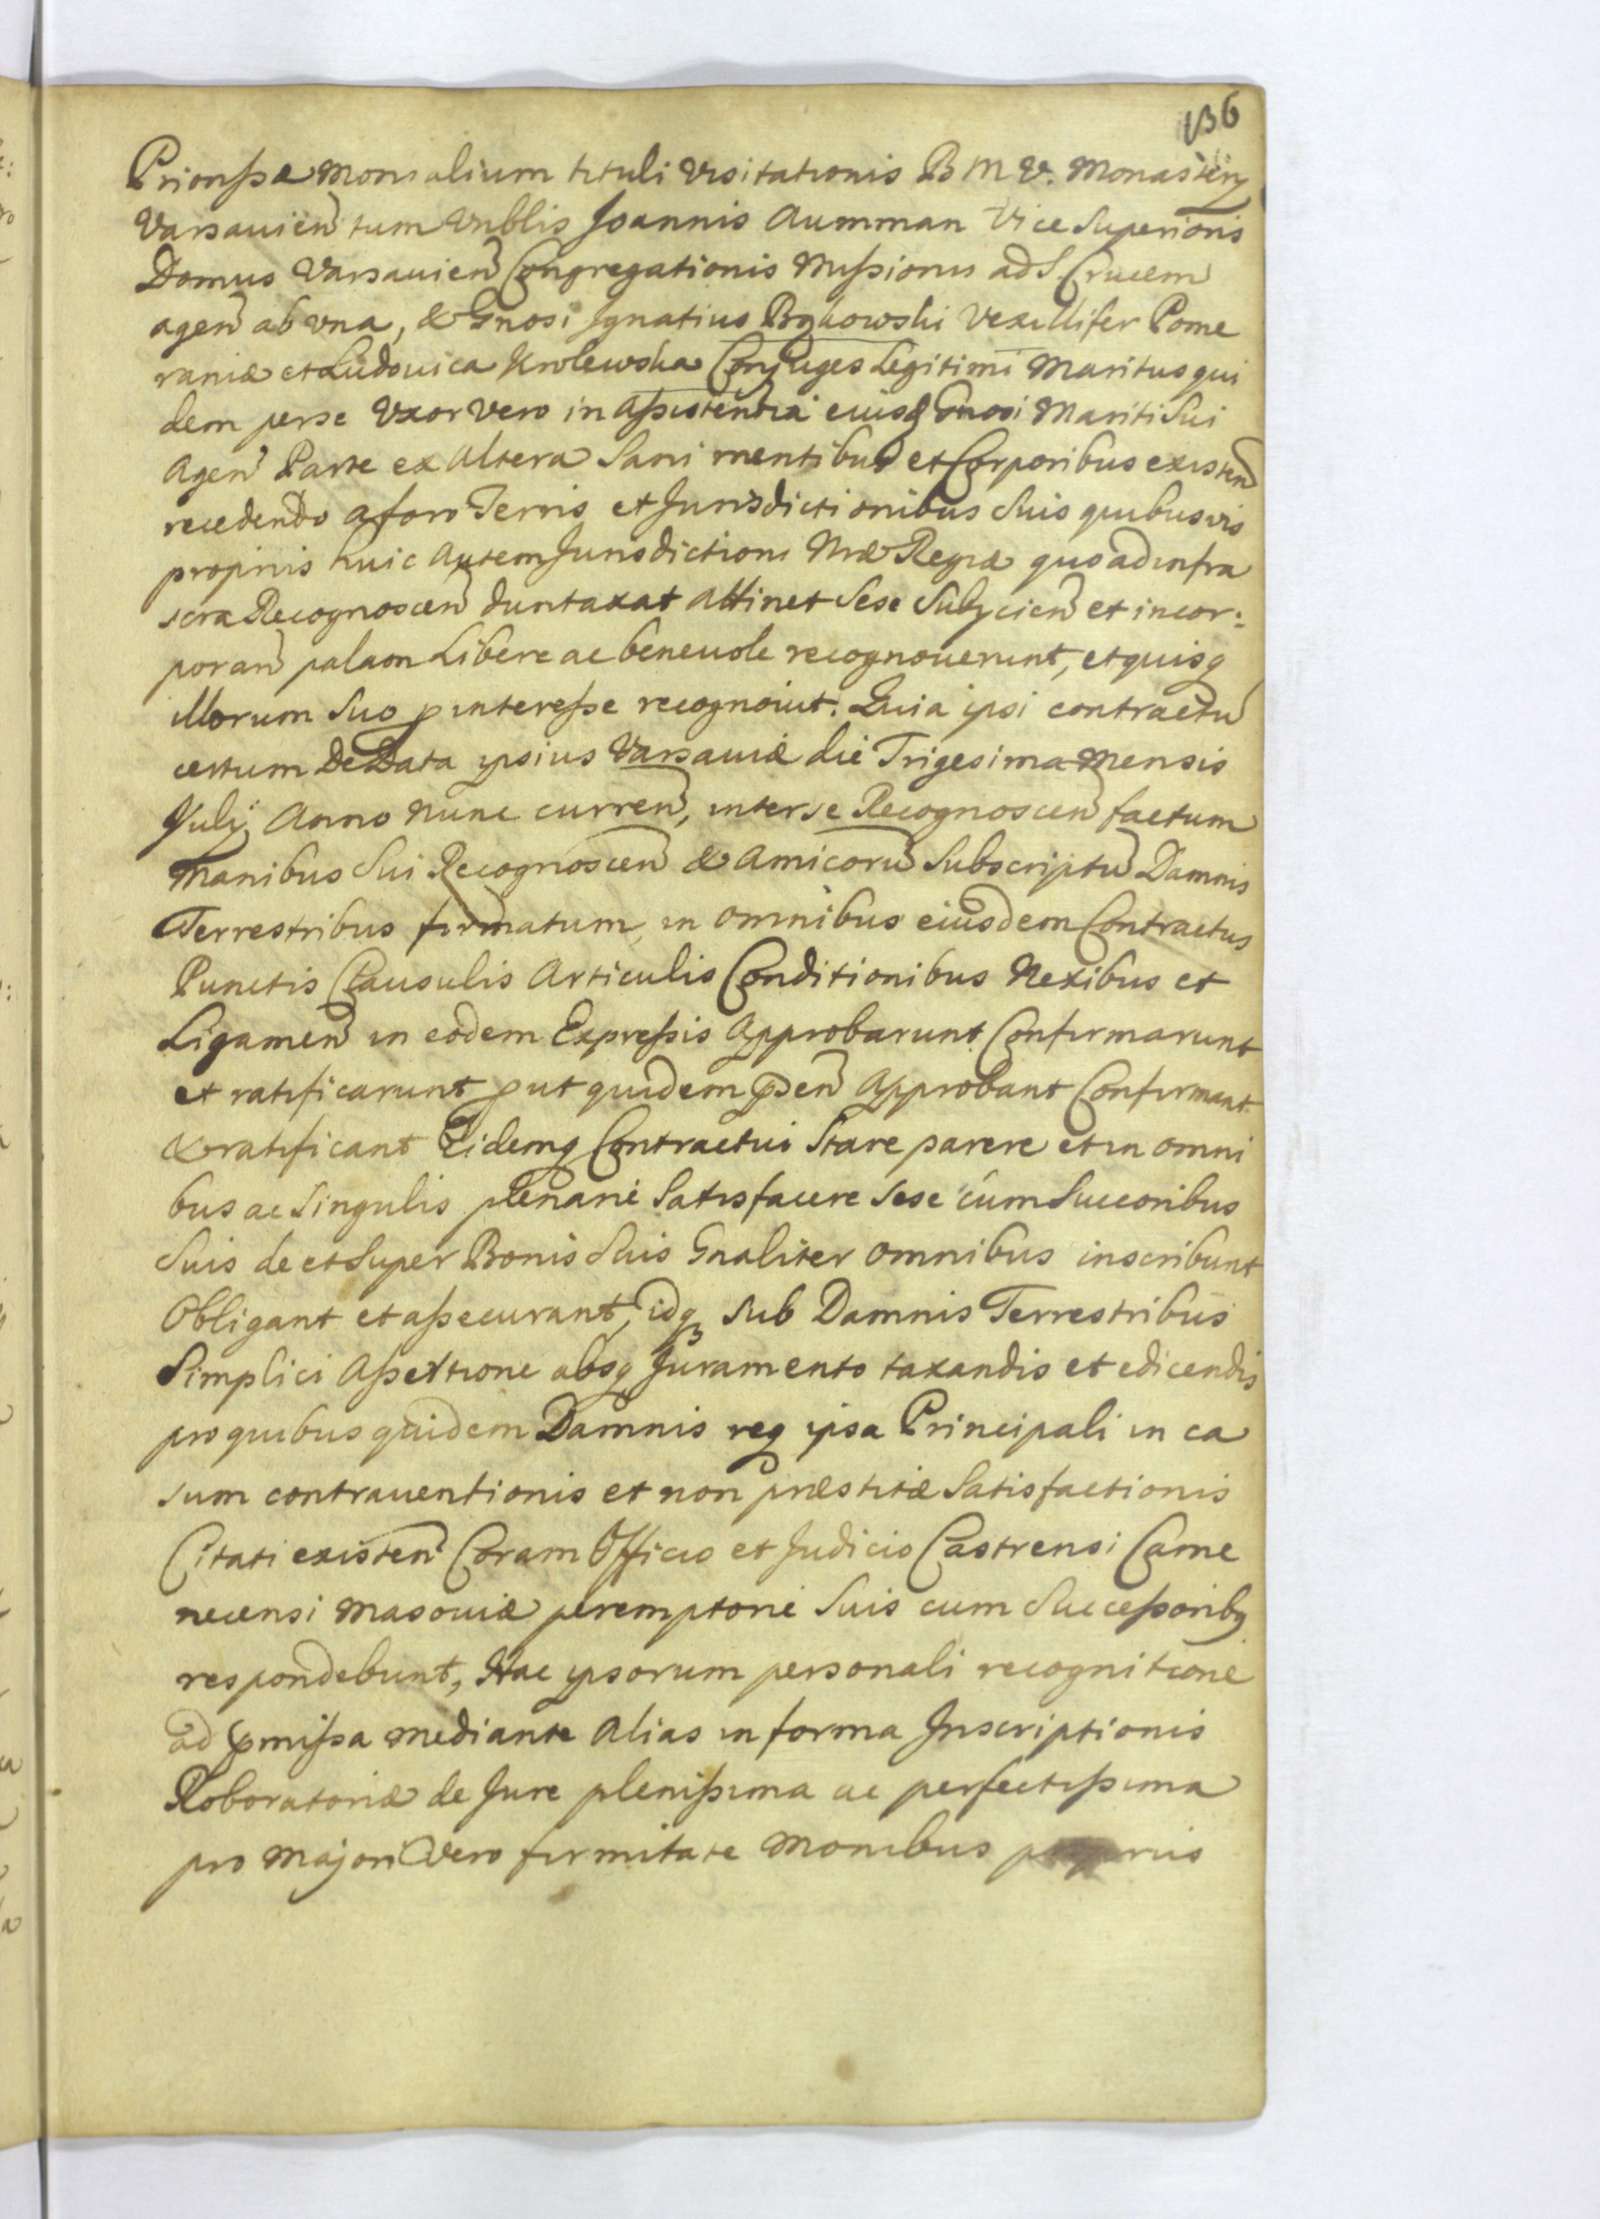 136
Prioressæ Monialium tituli Visitationis B M V. Monasterij
Varsauien̄ tum Vnblis Joannis Aumman Vice Superioris
Domus Varsauien̄ Congregationis Missionis ad S. Crucem
agen̄ ab vna, & Gnosi Ignatius Bykowski Vexillifer Pome
raniæ et Ludouica Krolewska Conjuges Legitimi Maritus qui
dem per se Vxor vero in assistentia eiusdq Gnosi Mariti Sui
Agen̄ Parte ex altera Sani mentibus et Corporibus existen̄
recedendo a foro Terris et Jurisdictionibus Suis quibusvis
proprijs huic autem Jurisdictioni Nræ Regiæ quo ad infra
scra Recognoscen̄ duntaxat attinet Sese Subijcien̄ et incor:
poran̄ palam Libere ac beneuole recognouerunt, et quisq
illorum Suo p interesse recognouit. Quia ipsi contractū
certum De Data ipsius Varsauiæ die Trigesima Mensis
Julij Anno nunc curren̄, inter se Recognoscen̄ factum
Manibus Sui Recognoscen̄ & Amicorū Subscriptū Damnis
Terrestribus firmatum, in omnibus eiusdem Contractus
Punctis Clausulis Articulis Conditionibus Nexibus et
Ligamen̄ in eodem Expressis Approbarunt Confirmarunt
et ratificarunt put quidem p̄sen̄ Approbant Confirmant
& ratificant Eidemq Contractui Stare parere et in omni
bus ac Singulis plenarie Satisfacere Sese cum Succoribus
Suis de et Super Bonis Suis Gnaliter omnibus inscribunt
Obligant et assecurant, idq Sub Damnis Terrestribus
Simplici Assertione absq Juramento taxandis et edicendis
pro quibus quidem Damnis req ipsa Principali in ca
sum contrauentionis et non præstitæ Satisfactionis
Citati existen̄ Coram Officio et Judicio Castrensi Came
necensi Masouiæ peremptorie Suis cum Successoribq
respondebunt, Hac ipsorum personali recognitione
ad p̄missa mediante Alias in forma Inscriptionis
Roboratoriæ de Jure plenissima ac perfectissima
pro Majori Vero firmitate Manibus proprijs